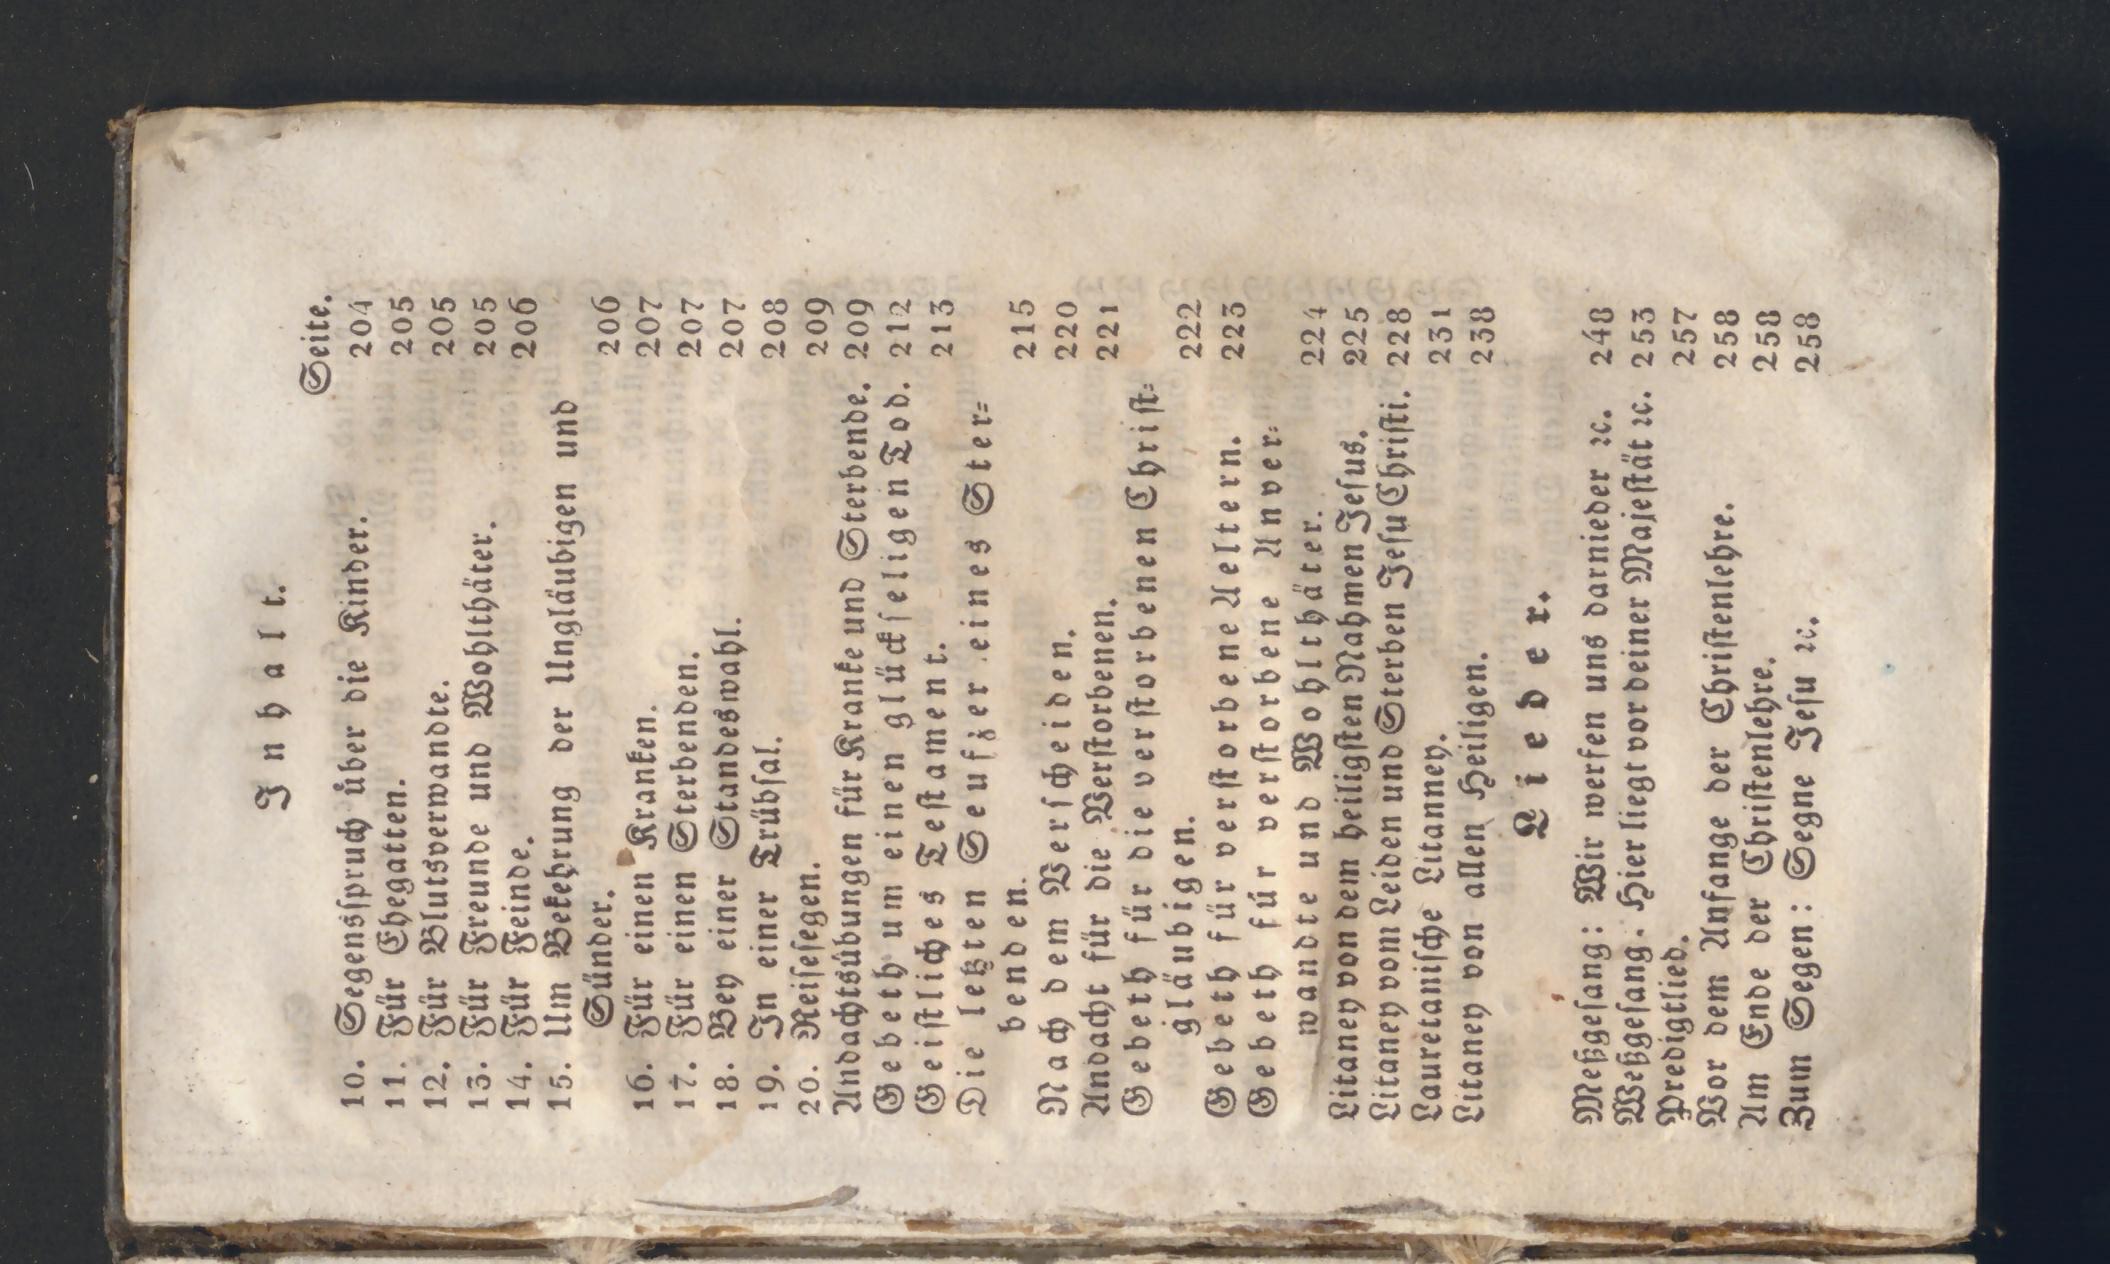 Inhalt.
Seite.
10. Segensspruch über die Kinder. 204
11. Für Ehegatten. 205
12. Für Blutsverwandte. 205
13. Für Freunde und Wohlthäter. 205
14. Für Feinde. 206
15. Um Bekehrung der Ungläubigen und
Sünder. 206
16. Für einen Kranken. 207
17. Für einen Sterbenden. 207
18. Bey einer Standeswahl. 207
19. In einer Trübsal. 208
20. Reisesegen. 209
Andachtsübungen für Kranke und Sterbende. 209
Gebeth um einen glückseligen Tod. 212
Geistliches Testament. 213
Die letzten Seufzer eines Ster=
benden. 215
Nach dem Verscheiden. 220
Andacht für die Verstorbenen. 221
Gebeth für die verstorbenen Christ=
gläubigen. 222
Gebeth für verstorbene Aeltern. 223
Gebeth für verstorbene Anver=
wandte und Wohlthäter. 224
Litaney von dem heiligsten Nahmen Jesus. 225
Litaney vom Leiden und Sterben Jesu Christi. 228
Lauretanische Litanney. 231
Litaney von allen Heiligen. 238
Lieder.
Meßgesang: Wir werfen uns darnieder ꝛc. 248
Weßgesang. Hier liegt vor deiner Majestät ꝛc. 253
Predigtlied. 257
Vor dem Anfange der Christenlehre. 258
Am Ende der Christenlehre. 258
Zum Segen: Segne Jesu ꝛc. 258